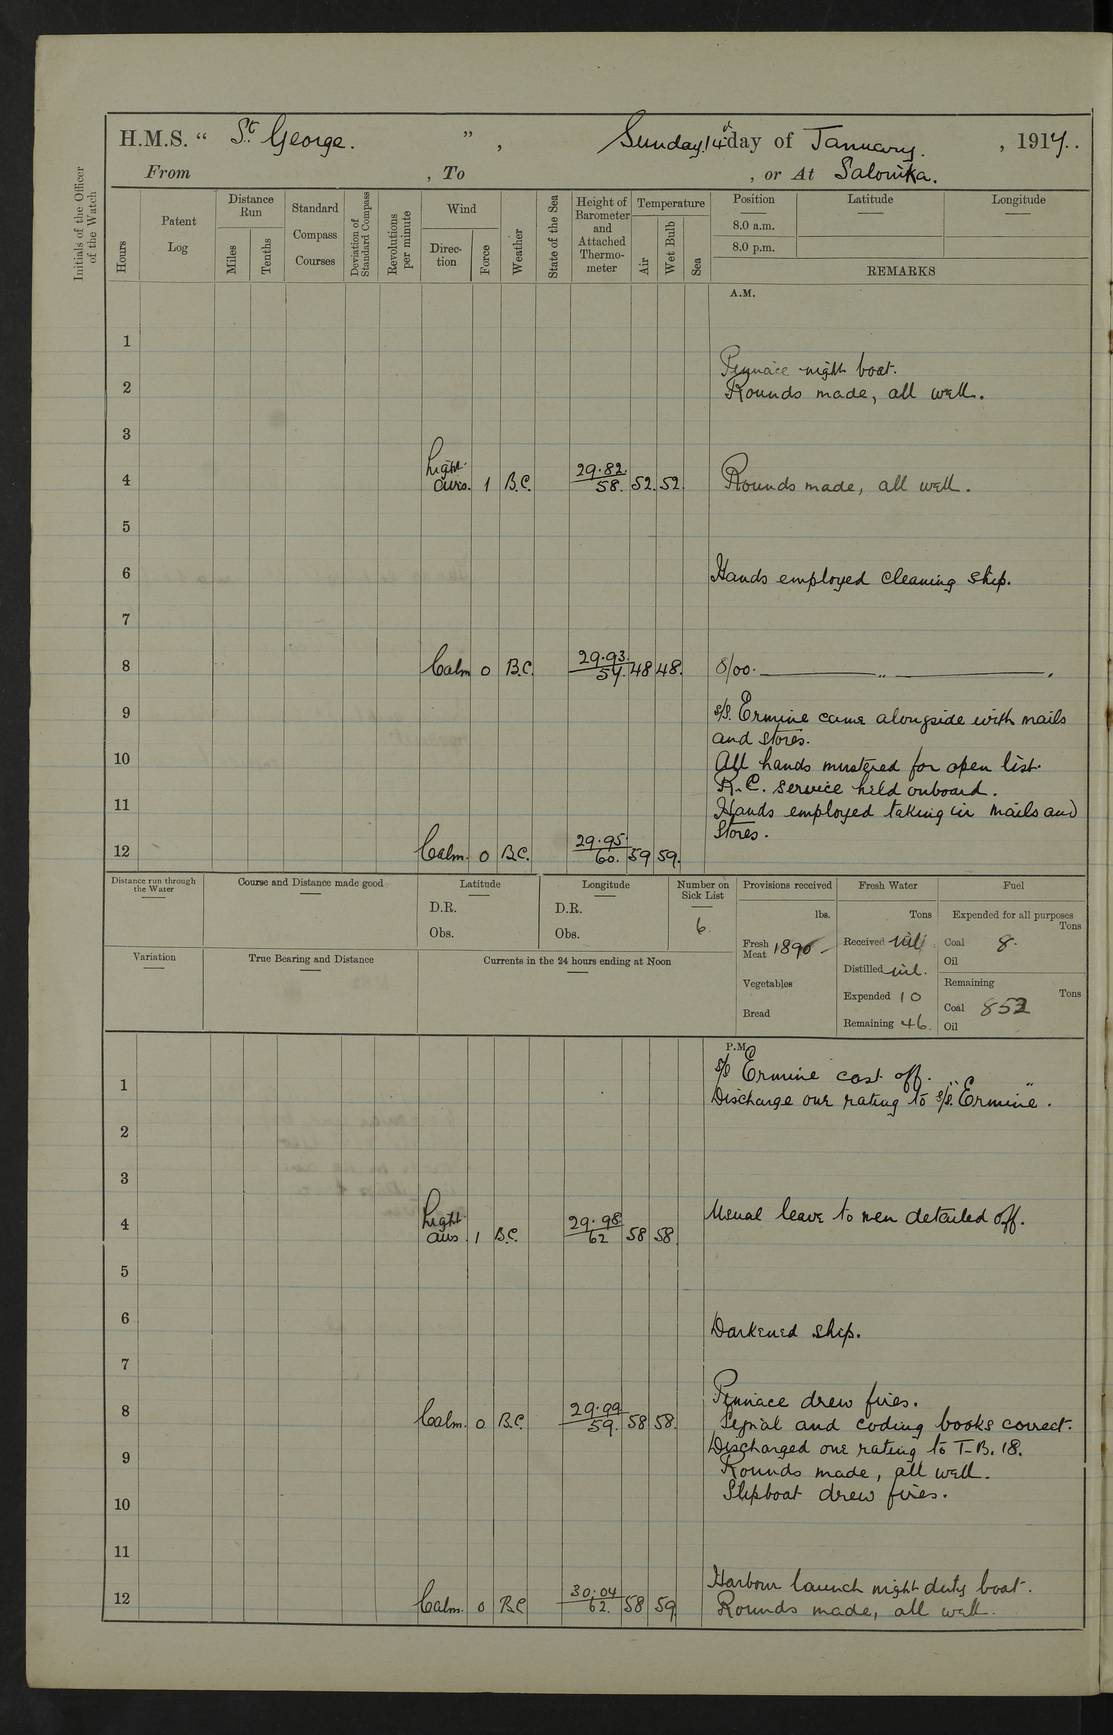 H.M.S. “ St. George. ” , Sunday 14th day of January. , 1917.
From , To , or At Salonika.
Initials of the Officer of the Watch
Hours
Patent Log
Distance Run
Miles
Tenths
Standard Compass Courses
Deviation of Standard Compass
Revolutions per minute
Wind
Direction
Force
Weather
State of the Sea
Height of Barometer and Attached Thermometer
Temperature
Air
Wet Bulb
Sea
Position Latitude Longitude
8.0 a.m.
8.0 p.m.
REMARKS
A.M.
1
Pinnace night boat.
2 Rounds made, all well.
3
4 Light airs. 1 B.C. 29.82. 58. 52. 52. Rounds made, all well.
5
6 Hands employed cleaning ship.
7
8 Calm 0 B.C. 29.93. 57. 48 48. 8/00. ——— „ ———.
9 s/s. Ermine came alongside with mails
and stores.
10 All hands mustered for open list.
R.C. service held onboard.
11 Hands employed taking in mails and
Stores.
12 Calm. 0 B.C. 29.95. 60. 59 59.
Distance run through the Water
Course and Distance made good
Latitude
D.R.
Obs.
Longitude
D.R.
Obs.
Number on Sick List
6.
Variation
True Bearing and Distance
Currents in the 24 hours ending at Noon
Provisions received
lbs.
Fresh Meat 1890 -
Vegetables
Bread
Fresh Water
Tons
Received nil.
Distilled nil.
Expended 10
Remaining 46.
Fuel
Expended for all purposes
Tons
Coal 8.
Oil
Remaining
Tons
Coal 852
Oil
P.M.
s/s Ermine cast off.
1 Discharge one rating to s/s. "Ermine".
2
3
4 Light airs. 1 B.C. 29.98 62 58 58. Usual leave to men detailed off.
5
6 Darkened ship.
7
Pinnace drew fires.
8 Calm. 0 B.C. 29.99 59. 58 58. Signal and coding books correct.
Discharged one rating to T.B. 18.
9 Rounds made, all well.
10 Slipboat drew fires.
11
Harbour launch night duty boat.
12 Calm. 0 B.C 30.04 62. 58 59 Rounds made, all well.